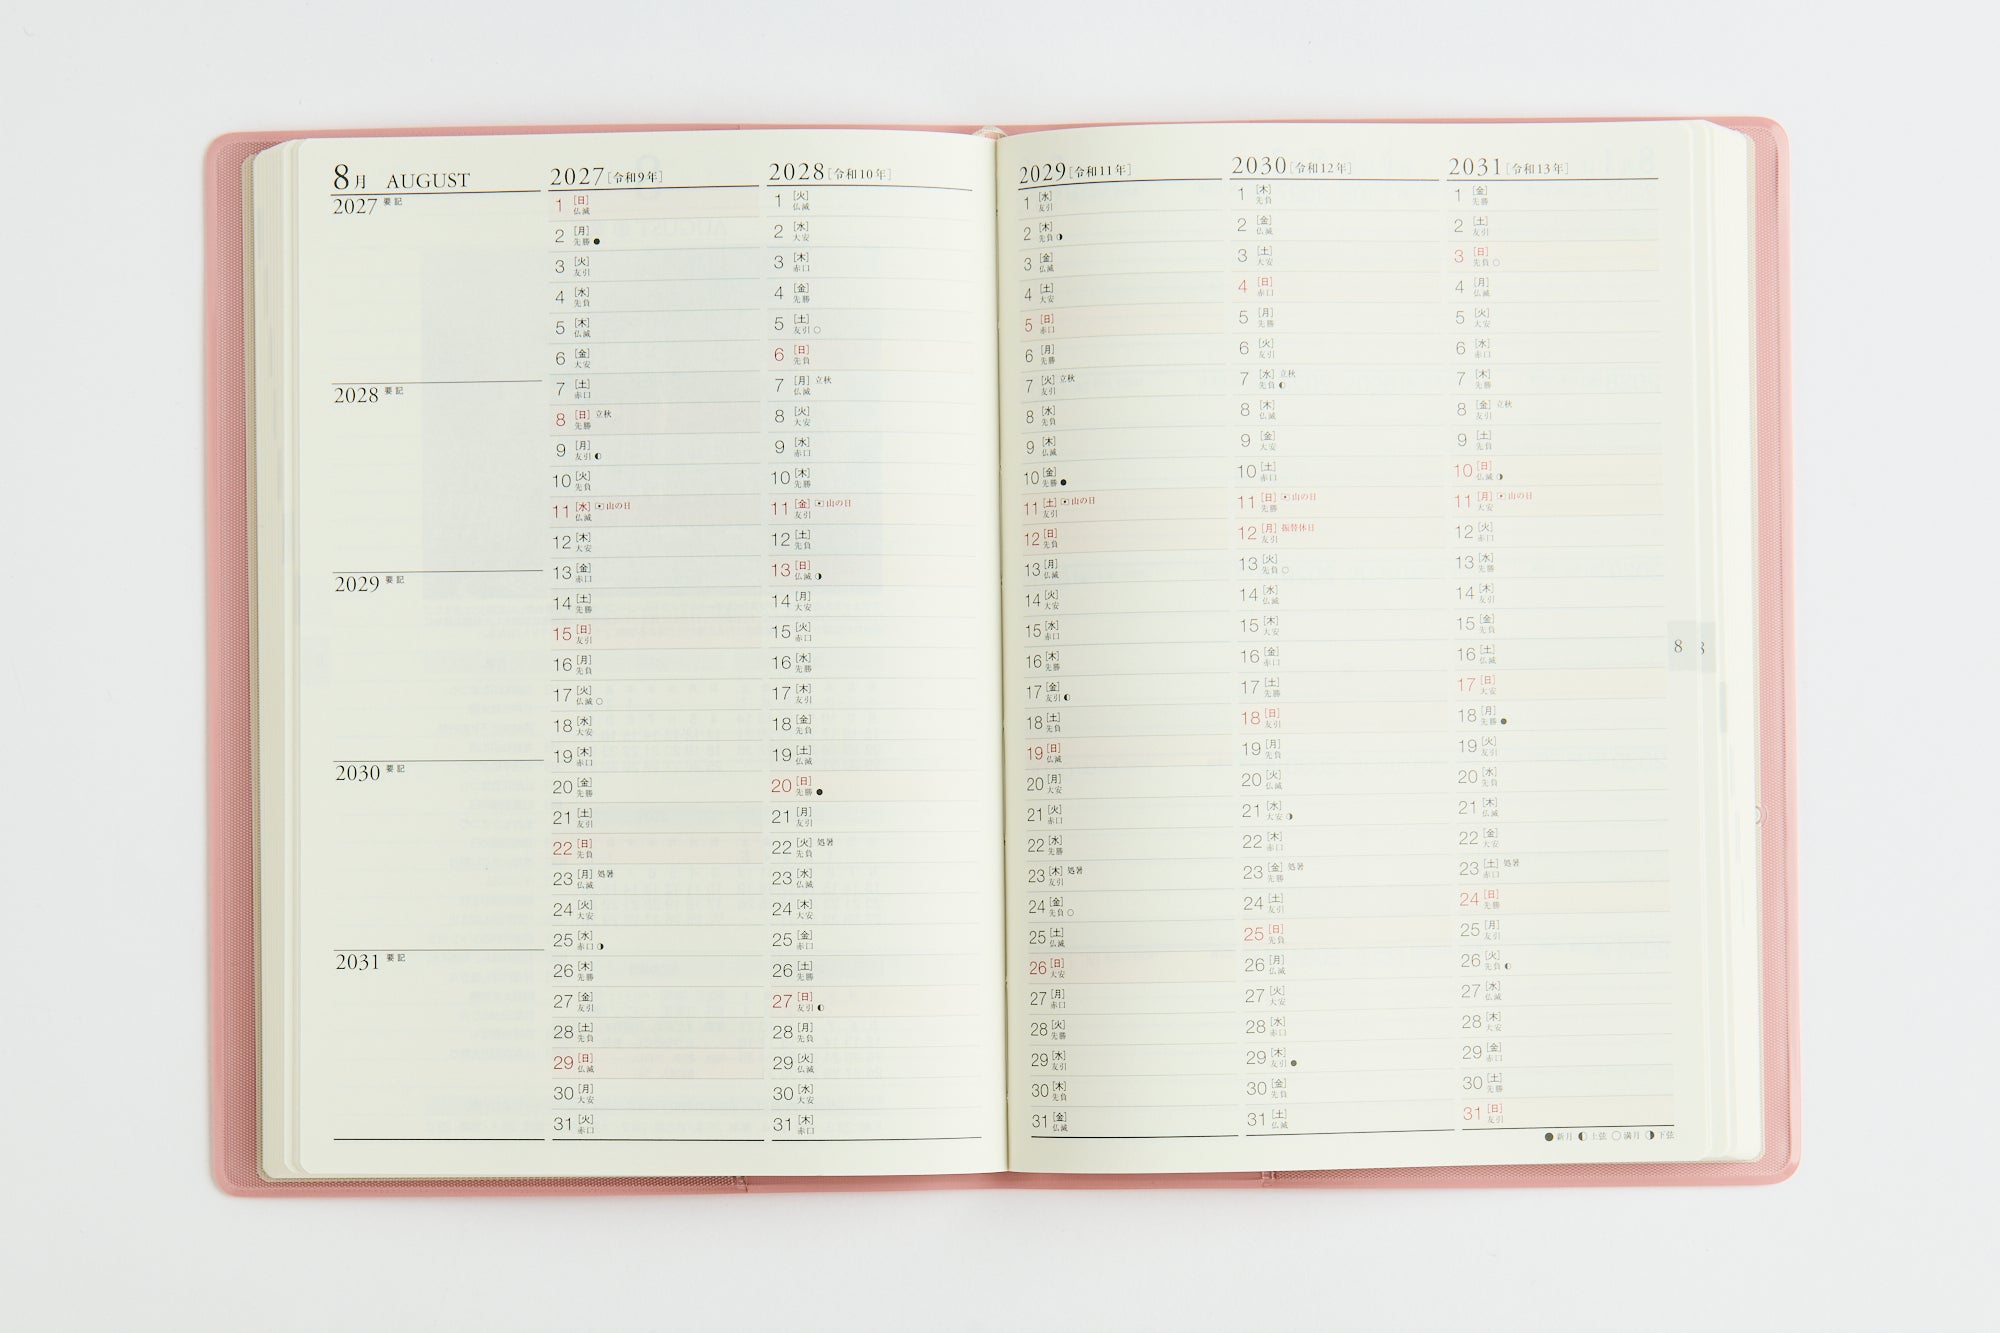 8月 AUGUST
2027 要記
2028 要記
2029 要記
2030 要記
2031 要記
2027[令和9年]
1 [日]
仏滅
2 [月]
先勝 ●
3 [火]
友引
4 [水]
先負
5 [木]
仏滅
6 [金]
大安
7 [土]
赤口
8 [日] 立秋
先勝
9 [月]
友引 ◐
10 [火]
先負
11 [水] 山の日
仏滅
12 [木]
大安
13 [金]
赤口
14 [土]
先勝
15 [日]
友引
16 [月]
先負
17 [火]
仏滅 ○
18 [水]
大安
19 [木]
赤口
20 [金]
先勝
21 [土]
友引
22 [日]
先負
23 [月] 処暑
仏滅
24 [火]
大安
25 [水]
赤口 ◑
26 [木]
先勝
27 [金]
友引
28 [土]
先負
29 [日]
仏滅
30 [月]
大安
31 [火]
赤口
2028[令和10年]
1 [火]
仏滅
2 [水]
大安
3 [木]
赤口
4 [金]
先勝
5 [土]
友引 ○
6 [日]
先負
7 [月] 立秋
仏滅
8 [火]
大安
9 [水]
赤口
10 [木]
先勝
11 [金] 山の日
友引
12 [土]
先負
13 [日]
仏滅 ◑
14 [月]
大安
15 [火]
赤口
16 [水]
先勝
17 [木]
友引
18 [金]
先負
19 [土]
仏滅
20 [日]
先勝 ●
21 [月]
友引
22 [火] 処暑
先負
23 [水]
仏滅
24 [木]
大安
25 [金]
赤口
26 [土]
先勝
27 [日]
友引 ◐
28 [月]
先負
29 [火]
仏滅
30 [水]
大安
31 [木]
赤口
2029[令和11年]
1 [水]
友引
2 [木]
先負 ◑
3 [金]
仏滅
4 [土]
大安
5 [日]
赤口
6 [月]
先勝
7 [火] 立秋
友引
8 [水]
先負
9 [木]
仏滅
10 [金]
先勝 ●
11 [土] 山の日
友引
12 [日]
先負
13 [月]
仏滅
14 [火]
大安
15 [水]
赤口
16 [木]
先勝
17 [金]
友引 ◐
18 [土]
先負
19 [日]
仏滅
20 [月]
大安
21 [火]
赤口
22 [水]
先勝
23 [木] 処暑
友引
24 [金]
先負 ○
25 [土]
仏滅
26 [日]
大安
27 [月]
赤口
28 [火]
先勝
29 [水]
友引
30 [木]
先負
31 [金]
仏滅
2030[令和12年]
1 [木]
先負
2 [金]
仏滅
3 [土]
大安
4 [日]
赤口
5 [月]
先勝
6 [火]
友引
7 [水] 立秋
先負 ◐
8 [木]
仏滅
9 [金]
大安
10 [土]
赤口
11 [日] 山の日
先勝
12 [月] 振替休日
友引
13 [火]
先負 ○
14 [水]
仏滅
15 [木]
大安
16 [金]
赤口
17 [土]
先勝
18 [日]
友引
19 [月]
先負
20 [火]
仏滅
21 [水]
大安 ◑
22 [木]
赤口
23 [金] 処暑
先勝
24 [土]
友引
25 [日]
先負
26 [月]
仏滅
27 [火]
大安
28 [水]
赤口
29 [木]
友引 ●
30 [金]
先負
31 [土]
仏滅
2031[令和13年]
1 [金]
先勝
2 [土]
友引
3 [日]
先負 ○
4 [月]
仏滅
5 [火]
大安
6 [水]
赤口
7 [木]
先勝
8 [金] 立秋
友引
9 [土]
先負
10 [日]
仏滅 ◑
11 [月] 山の日
大安
12 [火]
赤口
13 [水]
先勝
14 [木]
友引
15 [金]
先負
16 [土]
仏滅
17 [日]
大安
18 [月]
先勝 ●
19 [火]
友引
20 [水]
先負
21 [木]
仏滅
22 [金]
大安
23 [土] 処暑
赤口
24 [日]
先勝
25 [月]
友引
26 [火]
先負 ◐
27 [水]
仏滅
28 [木]
大安
29 [金]
赤口
30 [土]
先勝
31 [日]
友引
●新月 ◐上弦 ○満月 ◑下弦
8